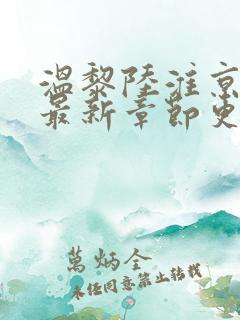 温黎陆淮京
最新章节免
萬炳全
未经同意禁止转载